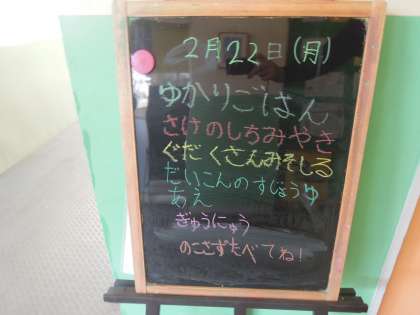 2月22日(月)
ゆかりごはん
さけのしちみやき
ぐだくさんみそしる
だいこんのすじょうゆ
あえ
ぎゅうにゅう
のこさずたべてね!